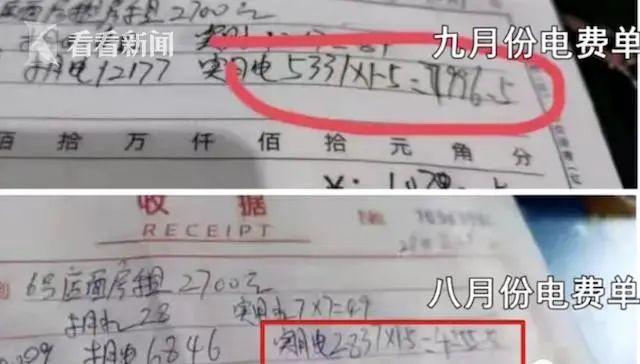 看看新闻
九月份电费单
店面房租2700元
抄用电12177 实用电5331×1.5=7996.5
佰 拾 万 仟 佰 拾 元 角 分
收据
RECEIPT
No
八月份电费单
6号店面房租2700元
28 7×7=49
6846 实用电2837×1.5=4255.5